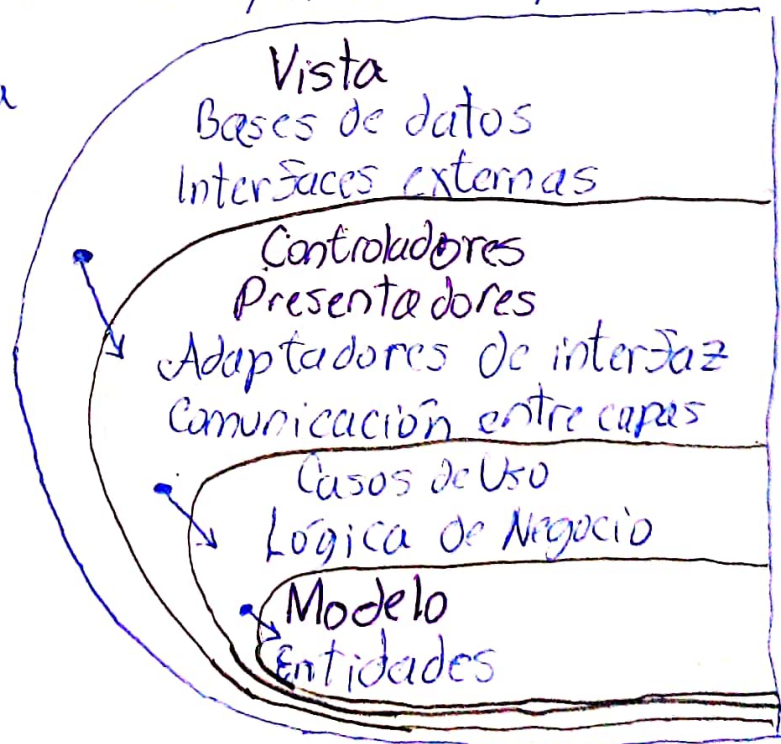 Vista
Bases de datos
Interfaces externas
Controladores
Presentadores
Adaptadores de interfaz
Comunicación entre capas
Casos de Uso
Lógica de Negocio
Modelo
Entidades